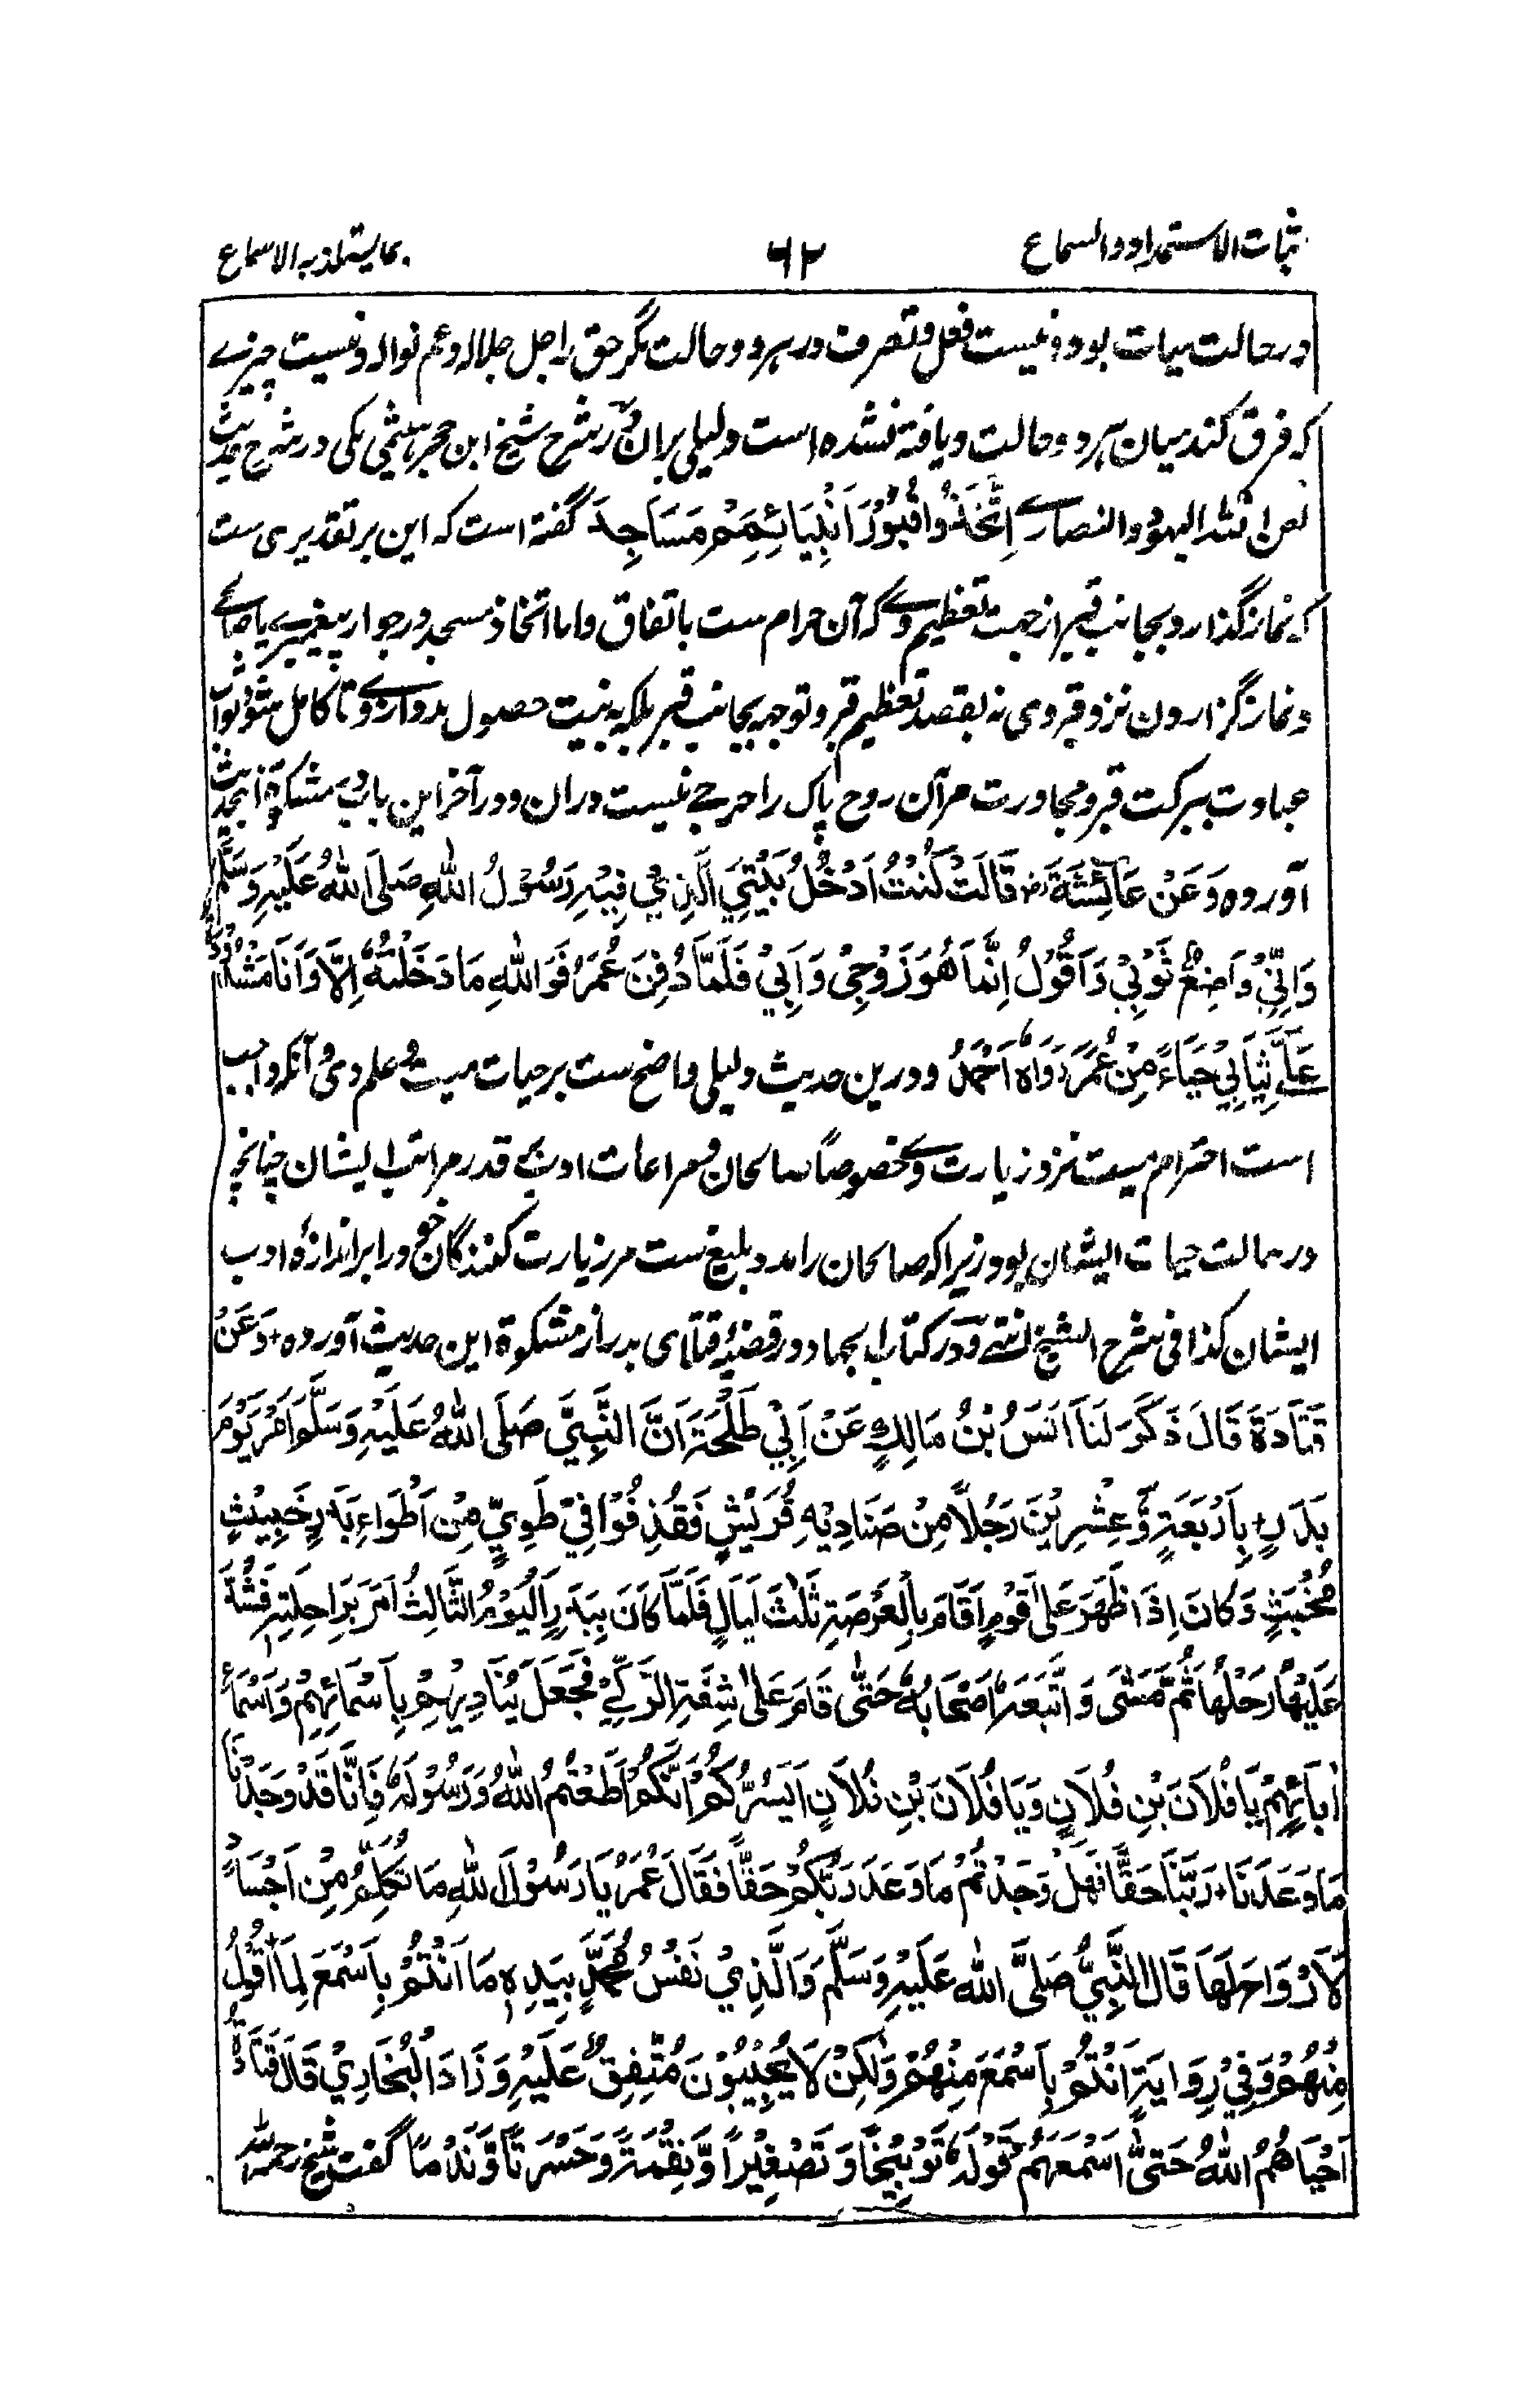 ثبات الاستمداد والسماع ۶۲ بما یستلذ به الاسماع
در حالت حیات بود و نیست فعل و تصرف در هر دو حالت مگر حق را جل جلاله و عم نواله و نیست چیزے
که فرق کند میان هر دو حالت و یافته نشده است دلیلی بران و در شرح شیخ ابن حجر هیتمی مکی در شرح حدیث
لعن الله الیهود والنصارے اِتَّخَذُوْا قُبُوْرَ اَنْبِیَائِهِمْ مَسَاجِدَ گفته است که این بر تقدیری ست
که نماز گذارد بجانب قبر از جهت تعظیم وے که آن حرام ست باتفاق و اما اتخاذ مسجد در جوار پیغمبرے یا صالحے
و نماز گزاردن نزد قبر وی نه بقصد تعظیم قبر و توجه بجانب قبر بلکه به نیت حصول مدد از وے تا کامل شود ثواب
عبادت ببرکت قبر و مجاورت مر آن روح پاک را حرجے نیست دران و در آخر این باب در مشکوة از حدیث
آورده وَعَنْ عَائِشَةَ رض قَالَتْ كُنْتُ اَدْخُلُ بَیْتِیَ الَّذِیْ فِیْهِ رَسُوْلُ اللهِ صَلَّی اللهُ عَلَیْهِ وَسَلَّمَ
وَاِنِّیْ وَاضِعٌ ثَوْبِیْ وَاَقُوْلُ اِنَّمَا هُوَ زَوْجِیْ وَاَبِیْ فَلَمَّا دُفِنَ عُمَرُ فَوَاللهِ مَا دَخَلْتُهُ اِلَّا وَاَنَا مَشْدُوْدَةٌ
عَلَےَّ ثِیَابِیْ حَیَاءً مِنْ عُمَرَ رَوَاهُ اَحْمَدُ و درین حدیث دلیلی واضح ست بر حیات میت و علم وی و آنکه واجب
است احترام میت نزد زیارت وے خصوصاً صالحان و مراعات ادب بر قدر مراتب ایشان چنانچه
در حالت حیات ایشان بود زیرا که صالحان را مدد بلیغ ست مر زیارت کنندگان خود را بر اندازهٔ ادب
ایشان کذا فی شرح الشیخ انتهے و در کتاب الجهاد در قضیهٔ قتلای بدر از مشکوة این حدیث آورده وَعَنْ
قَتَادَةَ قَالَ ذَكَرَ لَنَا اَنَسُ بْنُ مَالِكٍ عَنْ اَبِیْ طَلْحَةَ اَنَّ النَّبِیَّ صَلَّی اللهُ عَلَیْهِ وَسَلَّمَ اَمَرَ یَوْمَ
بَدْرٍ بِاَرْبَعَةٍ وَّعِشْرِیْنَ رَجُلًا مِنْ صَنَادِیْدِ قُرَیْشٍ فَقُذِفُوْا فِیْ طَوِیٍّ مِنْ اَطْوَاءِ بَدْرٍ خَبِیْثٍ
مُخْبِثٍ وَكَانَ اِذَا ظَهَرَ عَلٰی قَوْمٍ اَقَامَ بِالْعَرْصَةِ ثَلٰثَ لَیَالٍ فَلَمَّا كَانَ بِبَدْرٍ اَلْیَوْمُ الثَّالِثُ اَمَرَ بِرَاحِلَتِهٖ فَشُدَّ
عَلَیْهَا رَحْلُهَا ثُمَّ مَشٰی وَاتَّبَعَهُ اَصْحَابُهُ حَتّٰی قَامَ عَلٰی شَفَةِ الرَّكِیِّ فَجَعَلَ یُنَادِیْهِمْ بِاَسْمَائِهِمْ وَاَسْمَاءِ
اٰبَائِهِمْ یَا فُلَانَ بْنَ فُلَانٍ وَیَا فُلَانَ بْنَ فُلَانٍ اَیَسُرُّكُمْ اَنَّكُمْ اَطَعْتُمُ اللهَ وَرَسُوْلَهُ فَاِنَّا قَدْ وَجَدْنَا
مَا وَعَدَنَا رَبُّنَا حَقًّا فَهَلْ وَجَدْتُّمْ مَا وَعَدَ رَبُّكُمْ حَقًّا فَقَالَ عُمَرُ یَا رَسُوْلَ اللهِ مَا تُكَلِّمُ مِنْ اَجْسَادٍ
لَا اَرْوَاحَ لَهَا قَالَ النَّبِیُّ صَلَّی اللهُ عَلَیْهِ وَسَلَّمَ وَالَّذِیْ نَفْسُ مُحَمَّدٍ بِیَدِهٖ مَا اَنْتُمْ بِاَسْمَعَ لِمَا اَقُوْلُ
مِنْهُمْ وَفِیْ رِوَایَةٍ مَا اَنْتُمْ بِاَسْمَعَ مِنْهُمْ وَلٰكِنْ لَا یُجِیْبُوْنَ مُتَّفِقٌ عَلَیْهِ وَزَادَ الْبُخَارِیْ قَالَ قَتَادَةُ
اَحْیَاهُمُ اللهُ حَتّٰی اَسْمَعَهُمْ قَوْلَهُ تَوْبِیْخًا وَتَصْغِیْرًا وَّنِقْمَةً وَحَسْرَتًا وَّنَدْمًا گفت شیخ رحمه الله